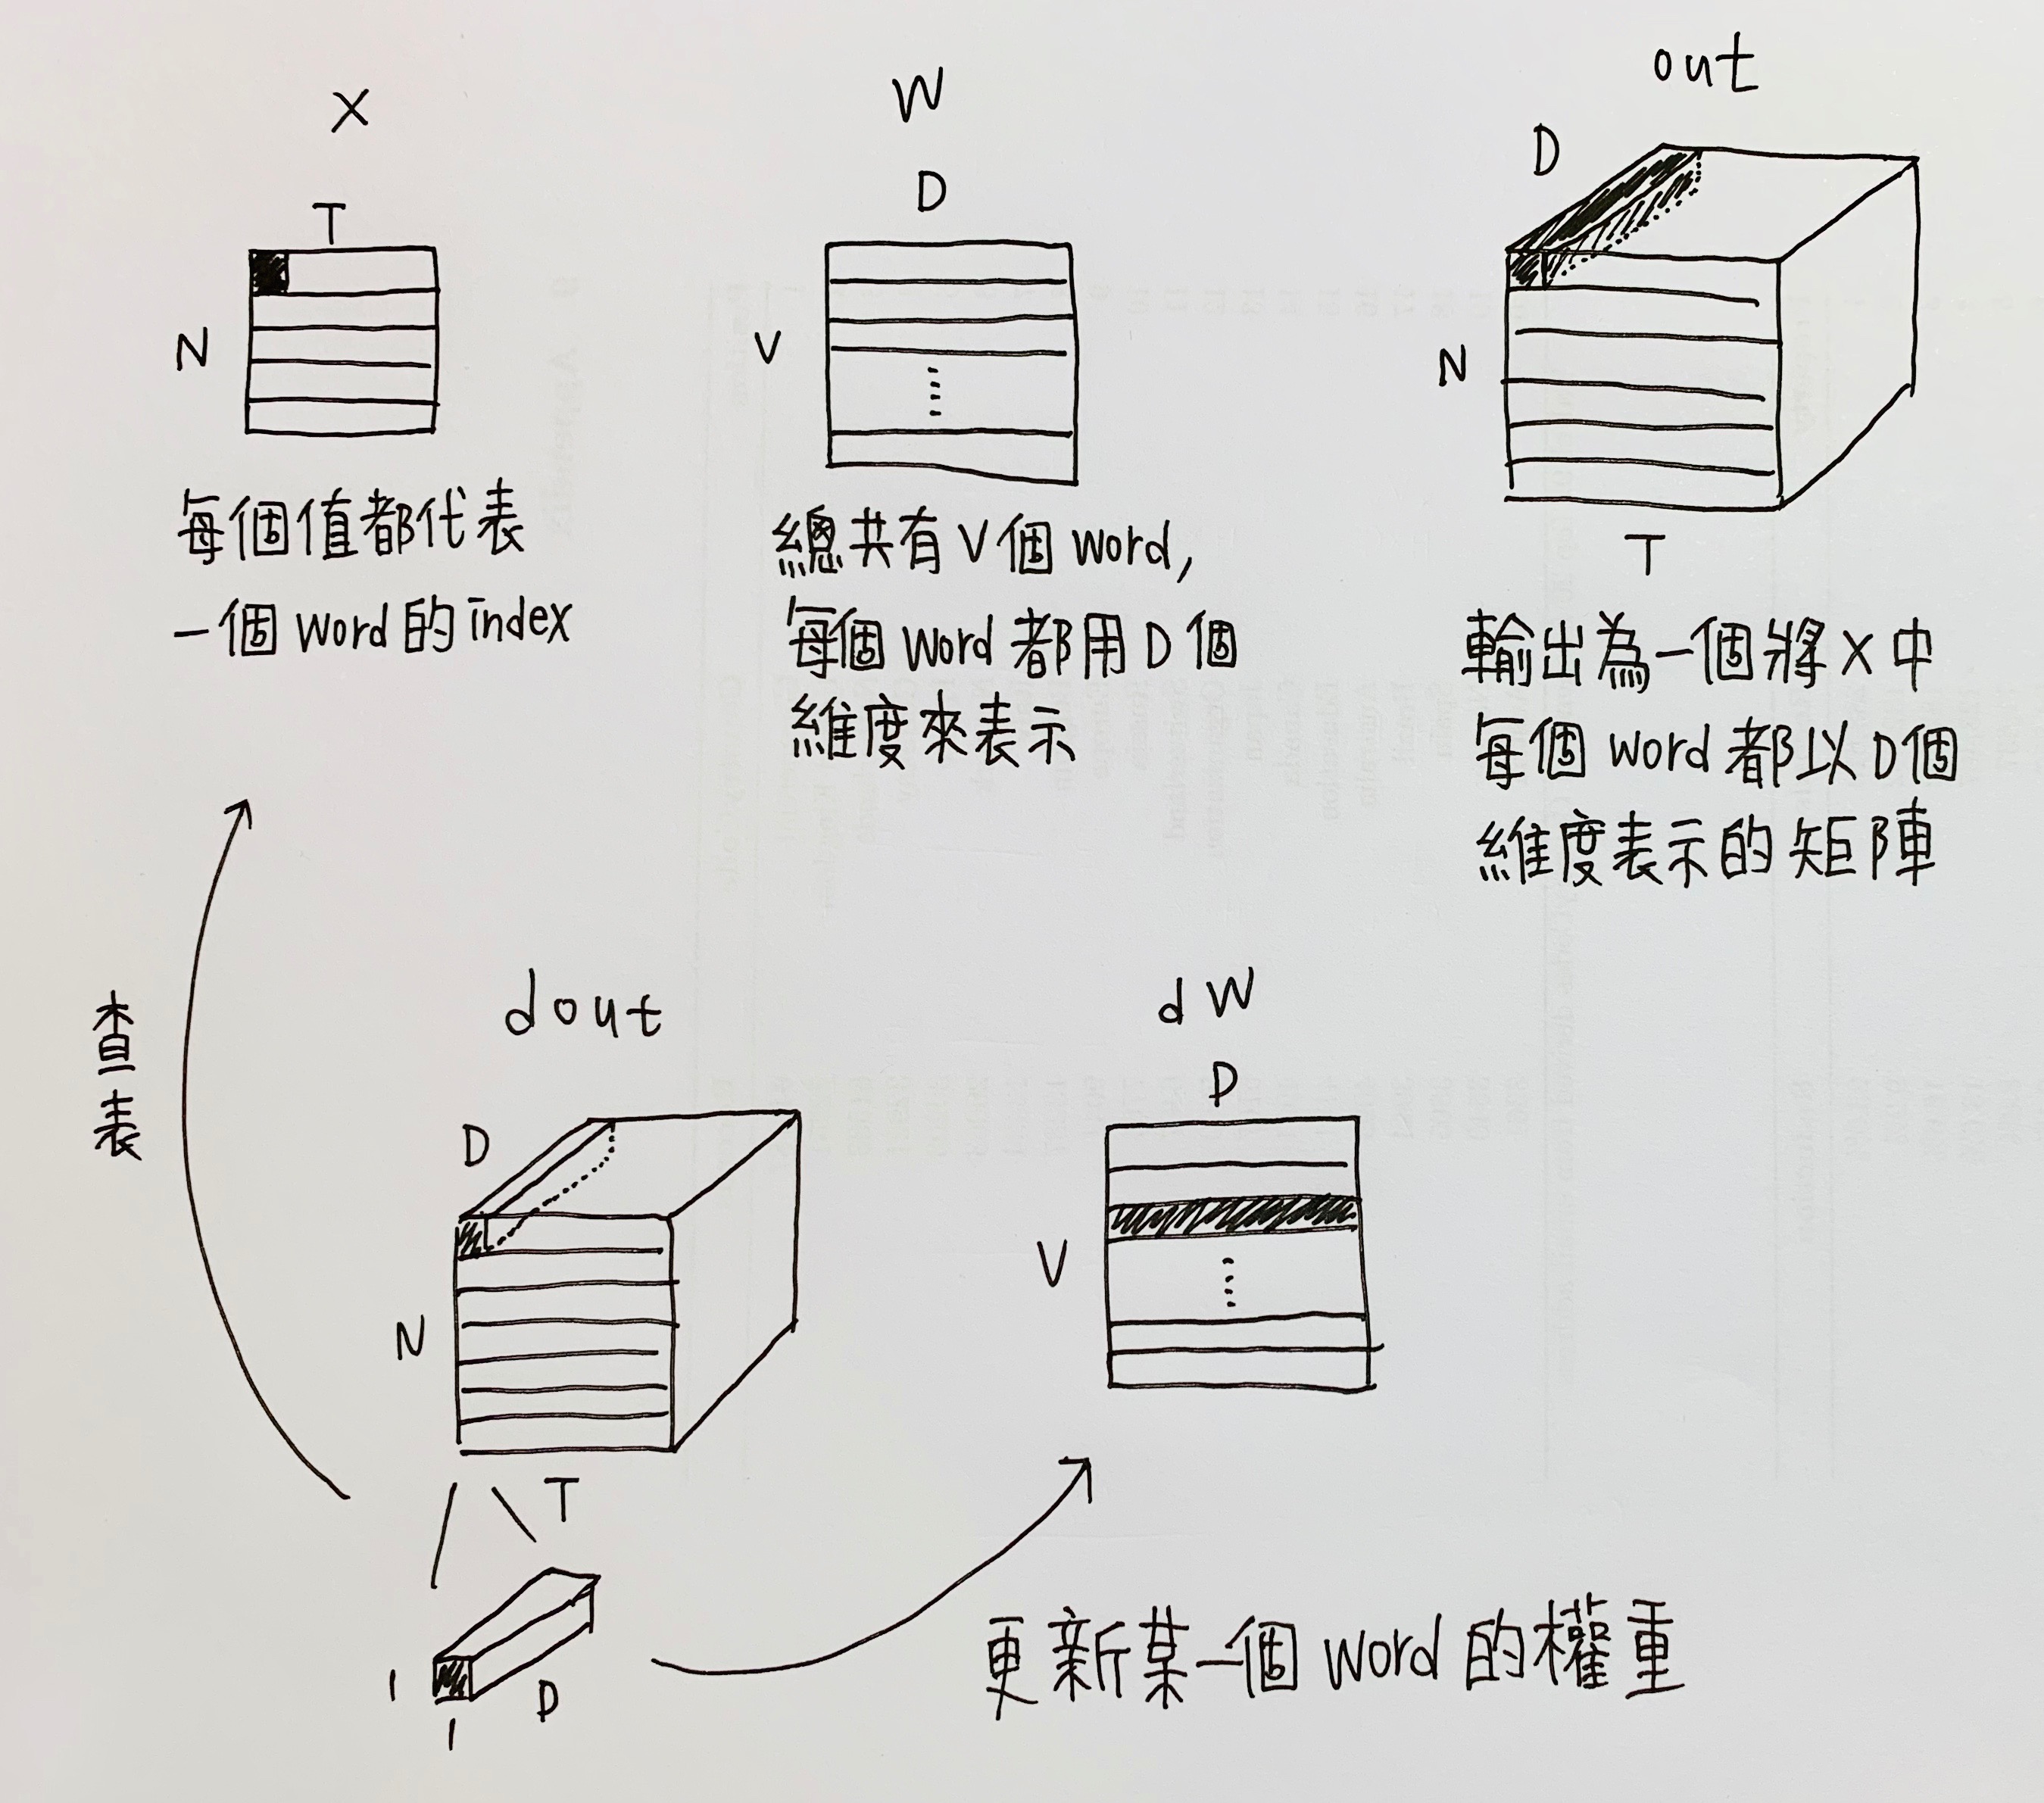 X
T
N
每個值都代表
一個 word 的 index
W
D
V
總共有 V 個 word,
每個 word 都用 D 個
維度來表示
out
D
N
T
輸出為一個將 X 中
每個 word 都以 D 個
維度表示的矩陣
查表
dout
D
N
T
1
1
D
dW
D
V
更新某一個 word 的權重